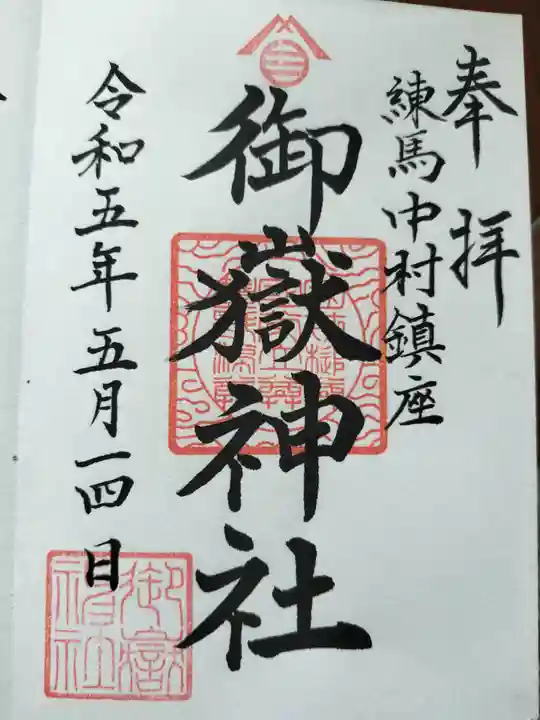 奉拝
練馬中村鎮座
御嶽神社
令和五年五月一四日
御嶽神社